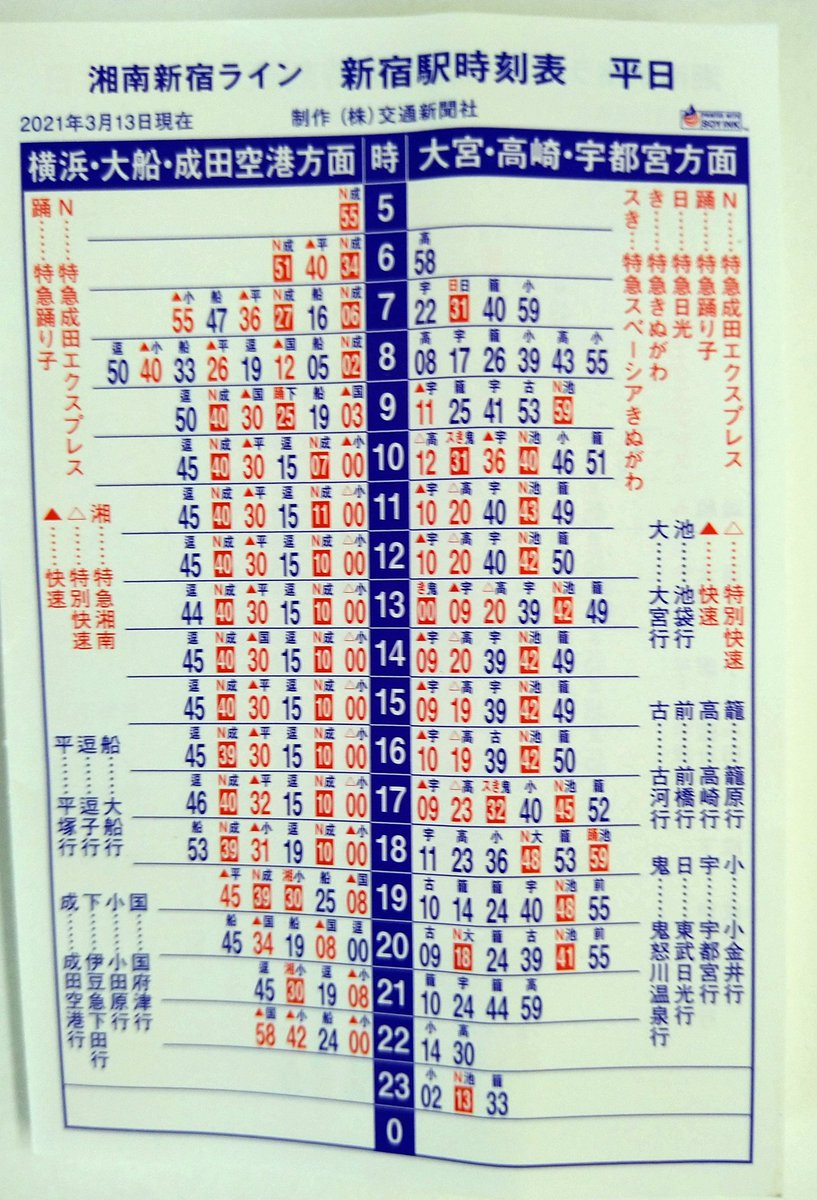 湘南新宿ライン 新宿駅時刻表 平日
2021年3月13日現在 制作（株）交通新聞社
SOY INK
横浜・大船・成田空港方面 時 大宮・高崎・宇都宮方面
N成55 5
N成51 ▲平40 N成34 6 高58
▲小55 船47 ▲平36 N成27 船16 N成06 7 宇22 日日31 籠40 小59
逗50 ▲小40 船33 ▲平26 逗19 ▲国12 船05 N成02 8 高08 宇17 籠26 小39 高43 小55
逗50 N成40 ▲国30 踊下25 船19 ▲国03 9 ▲宇11 籠25 宇41 古53 N池59
逗45 N成40 ▲平30 逗15 N成07 ▲小00 10 △高12 スき鬼31 ▲宇36 N池40 小46 籠51
逗45 N成40 ▲平30 逗15 N成11 △小00 11 ▲宇10 △高20 宇40 N池43 籠49
逗45 N成40 ▲平30 逗15 N成10 △小00 12 ▲宇10 △高20 宇40 N池42 籠50
逗44 N成40 ▲平30 逗15 N成10 △小00 13 き鬼00 ▲宇09 △高20 宇39 N池42 籠49
逗45 N成40 ▲国30 逗15 N成10 △小00 14 ▲宇09 △高20 宇39 N池42 籠49
逗45 N成40 ▲平30 逗15 N成10 △小00 15 ▲宇09 △高19 宇39 N池42 籠49
逗45 N成39 ▲平30 逗15 N成10 △小00 16 ▲宇10 △高19 古39 N池42 籠50
逗46 N成40 ▲平32 逗15 N成10 △小00 17 ▲宇09 △高23 スき鬼32 宇40 N池45 籠52
船53 N成39 ▲小31 逗19 N成10 ▲小00 18 宇11 高23 小36 N大48 籠53 踊池59
▲平45 N成39 湘小30 船25 ▲国08 19 古10 籠14 籠24 宇40 N池48 前55
船45 ▲国34 船19 ▲国08 逗00 20 古09 N大18 籠24 古39 N池41 前55
逗45 湘小30 逗19 ▲小08 21 籠10 宇24 籠44 高59
▲国58 ▲小42 船24 ▲小00 22 小14 高30
23 小02 N池13 籠33
0
N……特急成田エクスプレス
踊……特急踊り子
湘……特急湘南
△……特別快速
▲……快速
船……大船行
逗……逗子行
平……平塚行
国……国府津行
小……小田原行
下……伊豆急下田行
成……成田空港行
N……特急成田エクスプレス
踊……特急踊り子
日……特急日光
き……特急きぬがわ
スき…特急スペーシアきぬがわ
△……特別快速
▲……快速
池……池袋行
大……大宮行
籠……籠原行
高……高崎行
前……前橋行
古……古河行
小……小金井行
宇……宇都宮行
日……東武日光行
鬼……鬼怒川温泉行